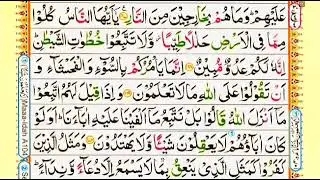 عَلَيۡهِمۡؕ وَمَا هُمۡ بِخَارِجِيۡنَ مِنَ النَّارِ يٰٓاَيُّهَا النَّاسُ كُلُوۡا
مِمَّا فِى الۡاَرۡضِ حَلٰلًا طَيِّبًا ۖ وَّلَا تَتَّبِعُوۡا خُطُوٰتِ الشَّيۡطٰنِؕ
اِنَّهٗ لَـكُمۡ عَدُوٌّ مُّبِيۡنٌ اِنَّمَا يَاۡمُرُكُمۡ بِالسُّوۡٓءِ وَالۡفَحۡشَآءِ وَ
اَنۡ تَقُوۡلُوۡا عَلَى اللّٰهِ مَا لَا تَعۡلَمُوۡنَ وَاِذَا قِيۡلَ لَهُمُ اتَّبِعُوۡا
مَآ اَنۡزَلَ اللّٰهُ قَالُوۡا بَلۡ نَـتَّبِعُ مَآ اَلۡفَيۡنَا عَلَيۡهِ اٰبَآءَنَاؕ اَوَلَوۡ
كَانَ اٰبَآؤُهُمۡ لَا يَعۡقِلُوۡنَ شَيۡـًٔـا وَّلَا يَهۡتَدُوۡنَ وَمَثَلُ الَّذِيۡنَ
كَفَرُوۡا كَمَثَلِ الَّذِىۡ يَنۡعِقُ بِمَا لَا يَسۡمَعُ اِلَّا دُعَآءً وَّنِدَآءً ؕ